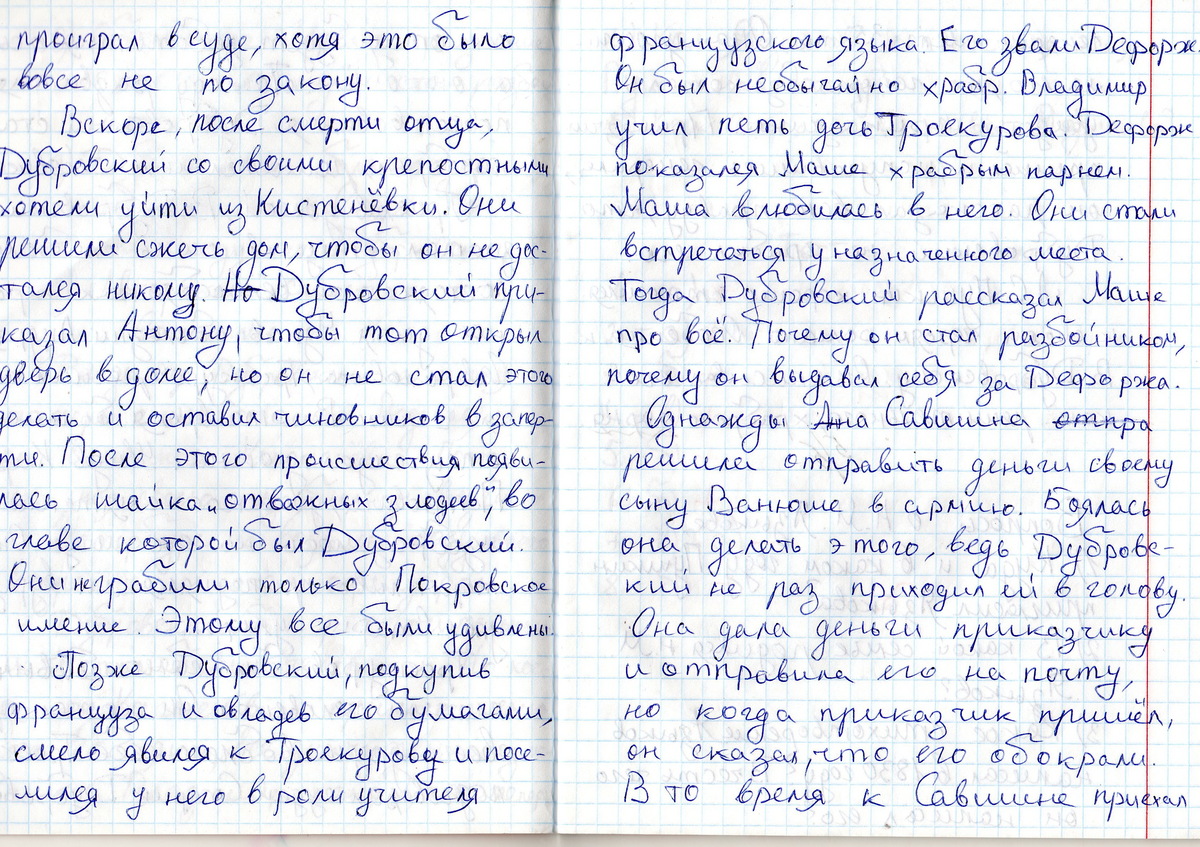 проиграл в суде, хотя это было
вовсе не по закону.
Вскоре, после смерти отца,
Дубровский со своими крепостными
хотели уйти из Кистенёвки. Они
решили сжечь дом, чтобы он не дос-
тался никому. Но Дубровский при-
казал Антону, чтобы тот открыл
дверь в доме, но он не стал этого
делать и оставил чиновников в запер-
ти. После этого происшествия появи-
лась шайка „отважных злодеев", во
главе которой был Дубровский.
Они не грабили только Покровское
имение. Этому все были удивлены.
Позже Дубровский, подкупив
француза и овладев его бумагами,
смело явился к Троекурову и посе-
лился у него в роли учителя
французского языка. Его звали Дефорж.
Он был необычайно храбр. Владимир
учил петь дочь Троекурова. Дефорж
показался Маше храбрым парнем.
Маша влюбилась в него. Они стали
встречаться у назначенного места.
Тогда Дубровский рассказал Маше
про всё. Почему он стал разбойником,
почему он выдавал себя за Дефоржа.
Однажды Ана Савишна отпра
решила отправить деньги своему
сыну Ванюше в армию. Боялась
она делать этого, ведь Дубровс-
кий не раз приходил ей в голову.
Она дала деньги приказчику
и отправила его на почту,
но когда приказчик пришёл,
он сказал, что его обокрали.
В то время к Савишне приехал